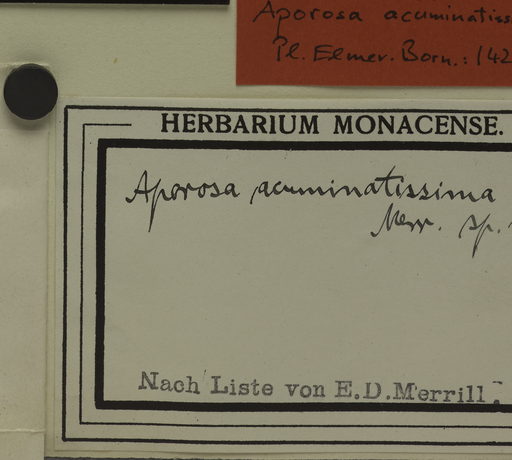 Aporosa acuminatiss
Pl. Elmer. Born.: 142
HERBARIUM MONACENSE.
Aporosa acuminatissima
Merr. sp.
Nach Liste von E.D.Merrill.